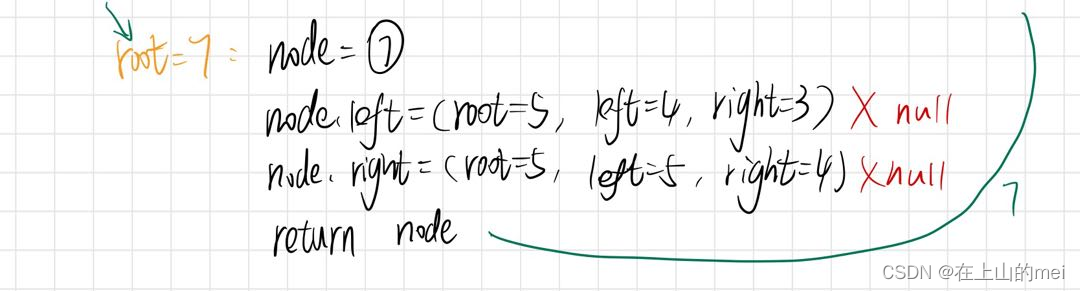 root=7: node=⑦
node.left=(root=5, left=4, right=3) X null
node.right=(root=5, left=5, right=4) X null
7
return node
CSDN @在上山的mei